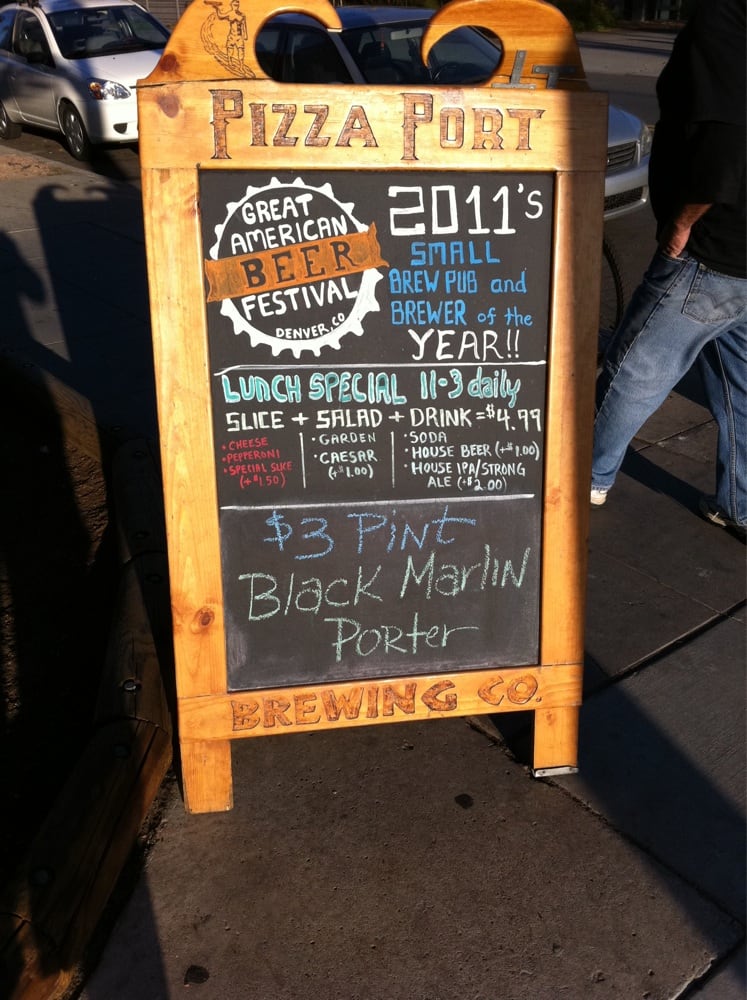 PIZZA PORT
GREAT
AMERICAN
BEER
FESTIVAL
DENVER, CO
2011's
SMALL
BREW PUB and
BREWER of the
YEAR!!
LUNCH SPECIAL 11-3 daily
SLICE + SALAD + DRINK = $4.99
• CHEESE
• PEPPERONI
• SPECIAL SLICE
(+$1.50)
• GARDEN
• CAESAR
(+$1.00)
• SODA
• HOUSE BEER (+$1.00)
• HOUSE IPA/STRONG
ALE (+$2.00)
$3 Pint
Black Marlin
Porter
BREWING CO.